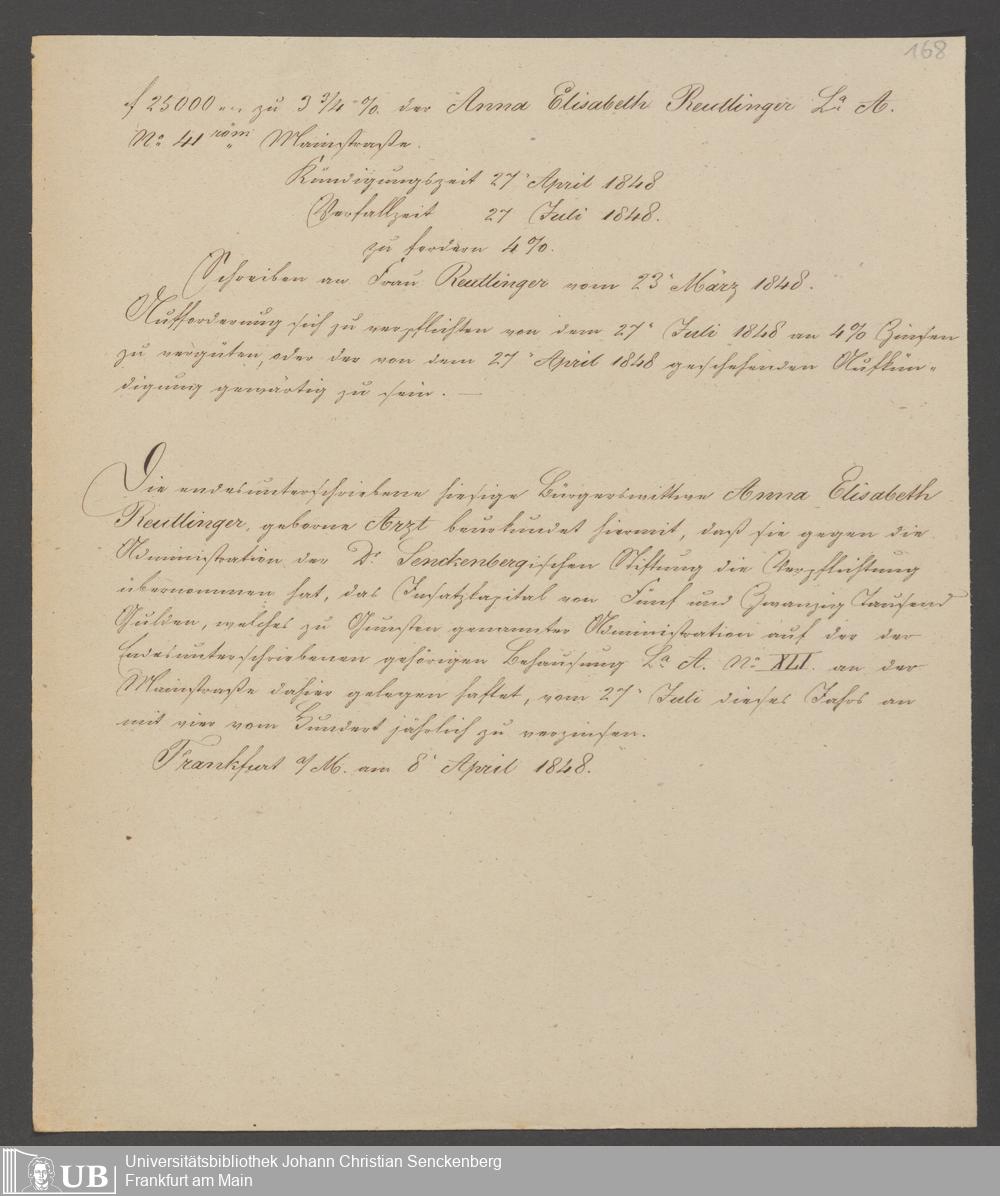 168
f 25000 „„ zu 3 3/4 %. der Anna Elisabeth Reutlinger La A.
No 41 röm: Mainstraße.
Kündigungszeit 27 April 1848
Verfallzeit 27 Juli 1848.
zu fordern 4 %.
Schreiben an Frau Reutlinger vom 23 März 1848.
Aufforderung sich zu verpflichten von dem 27 Juli 1848 an 4 % Zinsen
zu vergüten, oder der von dem 27 April 1848 geschehenden Aufkün-
digung gewärtig zu sein. —
Die endesunterschriebene hiesige Bürgerswittwe Anna Elisabeth
Reutlinger, geborne Arzt beurkundet hiermit, daß sie gegen die
Administration der Dr. Senckenbergischen Stiftung die Verpflichtung
übernommen hat, das Insatzkapital von Fünf und Zwanzig Tausend
Gulden, welches zu Gunsten genannter Administration auf der der
Endesunterschriebenen gehörigen Behausung La A. No XLI. an der
Mainstraße dahier gelegen haftet, vom 27 Juli dieses Jahrs an
mit vier vom Hundert jährlich zu verzinsen.
Frankfurt a/M. am 8 April 1848.
UB
Universitätsbibliothek Johann Christian Senckenberg
Frankfurt am Main